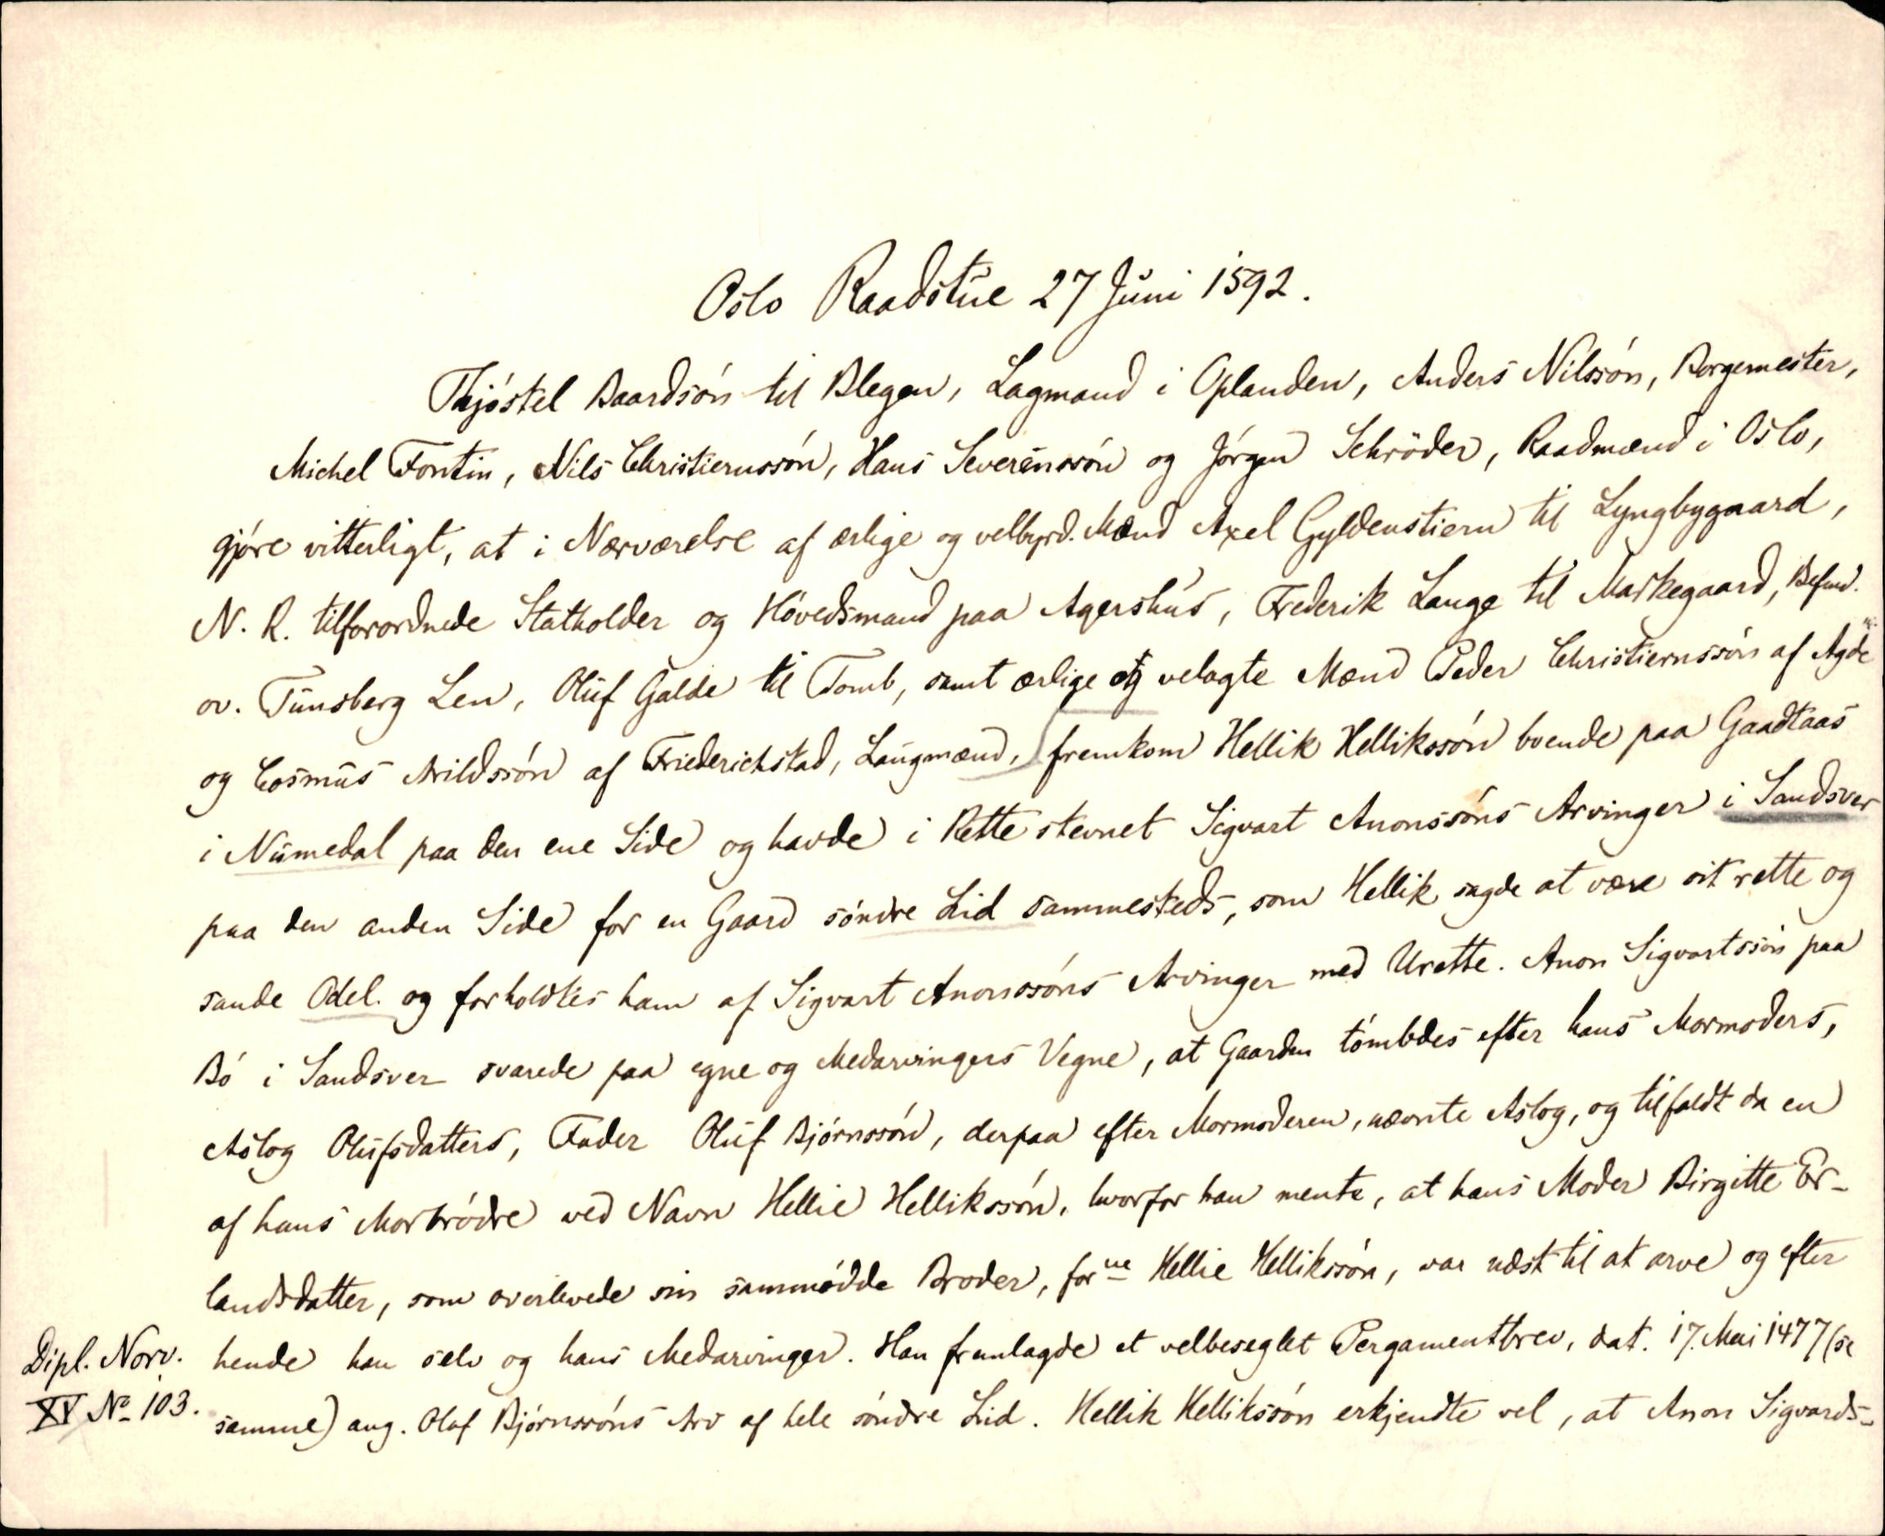 Oslo Raadstue 27 Juni 1592.
Thjóstel Baardsón til Blegen, Lagmand i Oplanden, Anders Nilssón, Borgemester,
Michel Fontin, Nils Christiernssón, Hans Severinssón og Jórgen Schröder, Raadmænd i Oslo,
gjóre vitterligt, at i Nærværelse af ærlige og velbyrd. Mænd Axel Gyldenstiern til Lyngbygaard,
N. R. tilforordnede Statholder og Hóvedsmand paa Agershus, Frederik Lange til Markegaard, Befmd.
ov. Tunsberg Len, Oluf Galde til Tomb, samt ærlige og velagte Mænd Peder Christiernssón af Agde
og Cosmus Arildssón af Friederichstad, Laugmænd, fremkom Hellik Hellikssón boende paa Gaadtaas
i Numedal paa den ene Side og havde i Rette stevnet Sigvart Anonssóns Arvinger i Sandsver
paa den anden Side for en Gaard sóndre Lid sammesteds, som Hellik sagde at være sit rette og
sande Odel. og forholdtes ham af Sigvart Anonssóns Arvinger med Urette. Anon Sigvartssón paa
Bó i Sandsver svarede paa egne og Medarvingers Vegne, at Gaarden tómbdes efter hans Mormoders,
Aslog Olufsdatters, Fader Oluf Bjórnssón, derpaa efter Mormoderen, nævnte Aslog, og tilfaldt da en
af hans Morbródre ved Navn Hellie Hellikssón, hvorfor han mente, at hans Moder Birgitte Er-
landsdatter, som overlevede sin sammódde Broder, for<sup>ne</sup> Hellie Hellikssón, var næst til at arve og efter
hende han selv og hans Medarvinger. Han fremlagde et velbeseglet Pergamentbrev, dat. 17. Mai 1477 (se
samme) ang. Olaf Bjórnssóns Arv af hele sóndre Lid. Hellik Hellikssón erkjendte vel, at Anon Sigvards-
Dipl. Norv.
XV No 103.